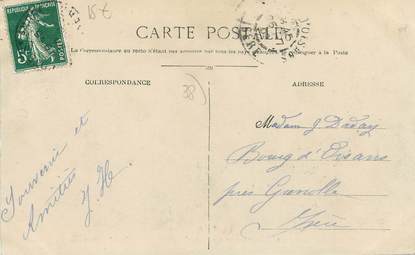 15€
CARTE POSTALE
La Correspondance au recto n'est pas acceptée par tous les pays étrangers. Se renseigner à la Poste
CORRESPONDANCE
ADRESSE
38)
Souvenir et
Amitiés
Madame J
Bourg d'Oisans
près Grenoble
Isère